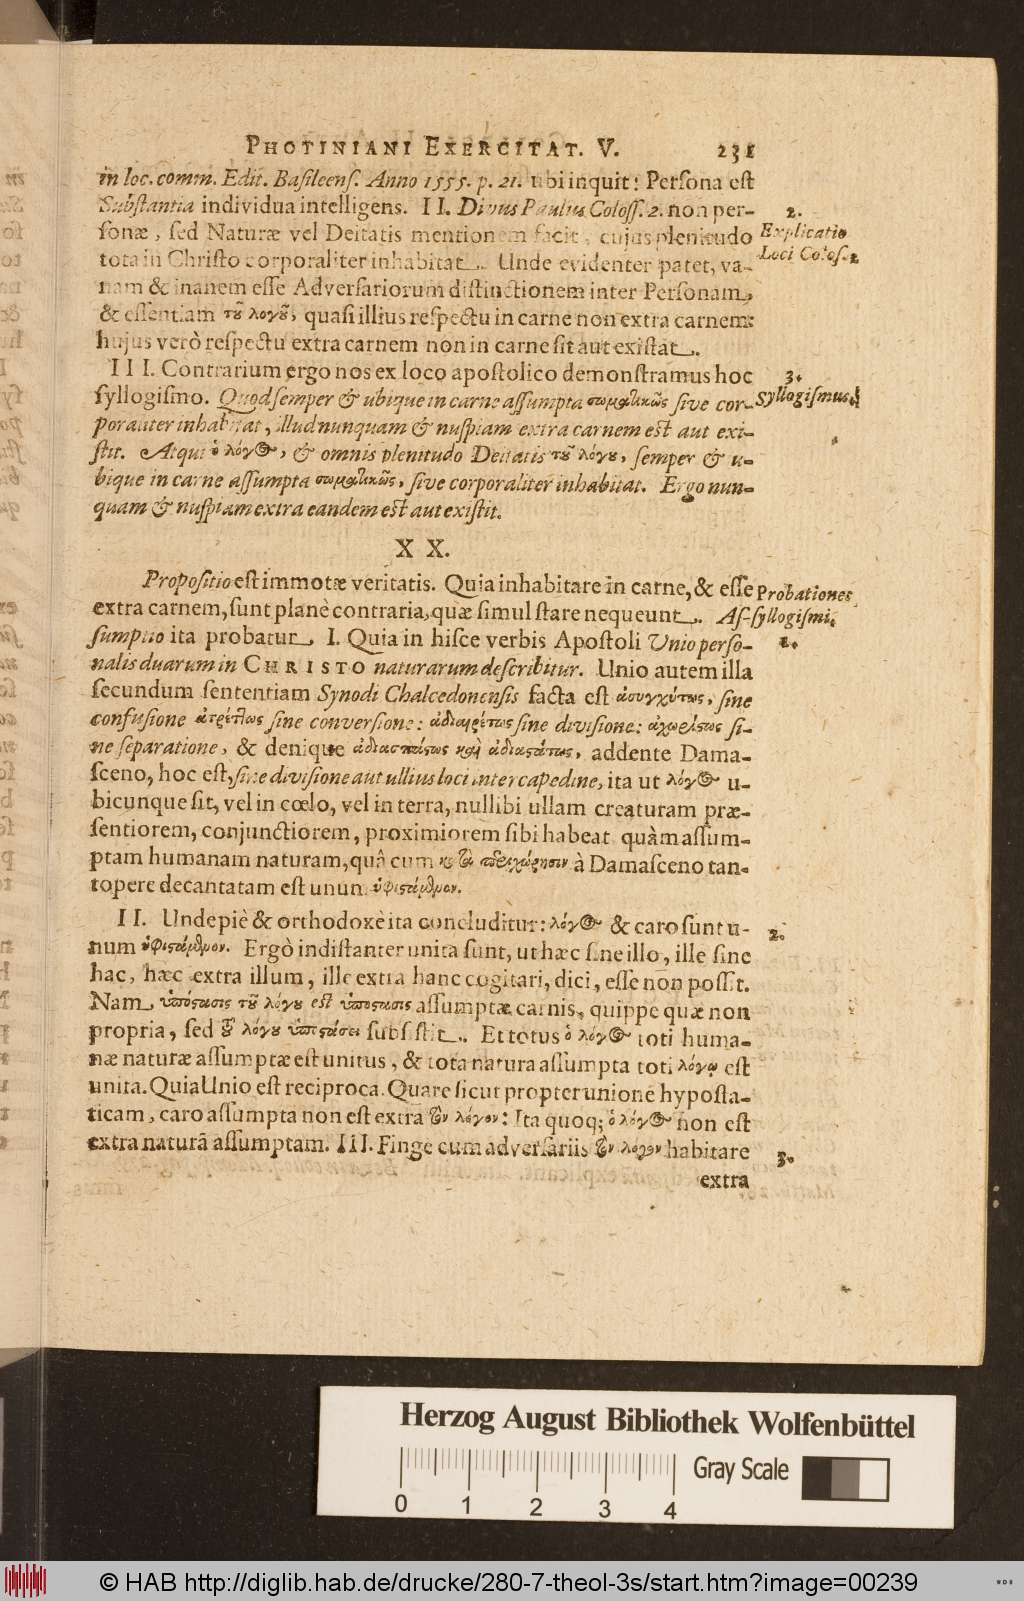 PHOTINIANI EXERCITAT. V. 231
in loc. comm. Edit. Basileens. Anno 1555. p. 21. ubi inquit: Persona est
Substantia individua intelligens. II. Divus Paulus Coloss. 2. non per-
sonæ, sed Naturæ vel Deitatis mentionem facit, cujus plenitudo
tota in Christo corporaliter inhabitat. Unde evidenter patet, va-
nam & inanem esse Adversariorum distinctionem inter Personam,
& essentiam τȣ͂ λογȣ͂, quasi illius respectu in carne non extra carnem:
hujus verò respectu extra carnem non in carne sit aut existat.
2.
Explicatio
Loci Colos. 2
III. Contrarium ergo nos ex loco apostolico demonstramus hoc
syllogismo. Quod semper & ubique in carne assumpta σωματικῶς sive cor-
poraliter inhabitat, illud nunquam & nuspiam extra carnem est aut exi-
stit. Atqui ὁ λόγος, & omnis plenitudo Deitatis τȣ͂ λόγȣ, semper & u-
bique in carne assumpta σωματικῶς, sive corporaliter inhabitat. Ergo nun-
quam & nuspiam extra eandem est aut existit.
3.
Syllogismus.
XX.
Propositio est immotæ veritatis. Quia inhabitare in carne, & esse
extra carnem, sunt planè contraria, quæ simul stare nequeunt. As-
sumptio ita probatur. I. Quia in hisce verbis Apostoli Unio perso-
nalis duarum in CHRISTO naturarum describitur. Unio autem illa
secundum sententiam Synodi Chalcedonensis facta est ἀσυγχύτως, sine
confusione ἀτρέπτως sine conversione: ἀδιαιρέτως sine divisione: ἀχωρίστως si-
ne separatione, & denique ἀδιασπάστως καὶ ἀδιαστάτως, addente Dama-
sceno, hoc est, sine divisione aut ullius loci intercapedine, ita ut λόγος u-
bicunque sit, vel in cœlo, vel in terra, nullibi ullam creaturam præ-
sentiorem, conjunctiorem, proximiorem sibi habeat quàm assum-
ptam humanam naturam, quâ cum κατὰ τὴν περιχώρησιν à Damasceno tan-
topere decantatam est unum ὑφιστάμενον.
Probationes
syllogismi.
1.
II. Unde piè & orthodoxè ita concluditur: λόγος & caro sunt u-
num ὑφιστάμενον. Ergò indistanter unita sunt, ut hæc sine illo, ille sine
hac, hæc extra illum, ille extra hanc cogitari, dici, esse non possit.
Nam ὑπόστασις τȣ͂ λόγȣ est ὑπόστασις assumptæ carnis, quippe quæ non
propria, sed τȣ͂ λόγȣ ὑποστάσει subsistit. Et totus ὁ λόγος toti huma-
næ naturæ assumptæ est unitus, & tota natura assumpta toti λόγῳ est
unita. Quia Unio est reciproca. Quare sicut propter unionē hyposta-
ticam, caro assumpta non est extra τὸν λόγον: Ita quoq; ὁ λόγος non est
extra naturā assumptam. III. Finge cum adversariis τὸν λόγον habitare
2.
3.
extra
Herzog August Bibliothek Wolfenbüttel
Gray Scale
0 1 2 3 4
© HAB http://diglib.hab.de/drucke/280-7-theol-3s/start.htm?image=00239